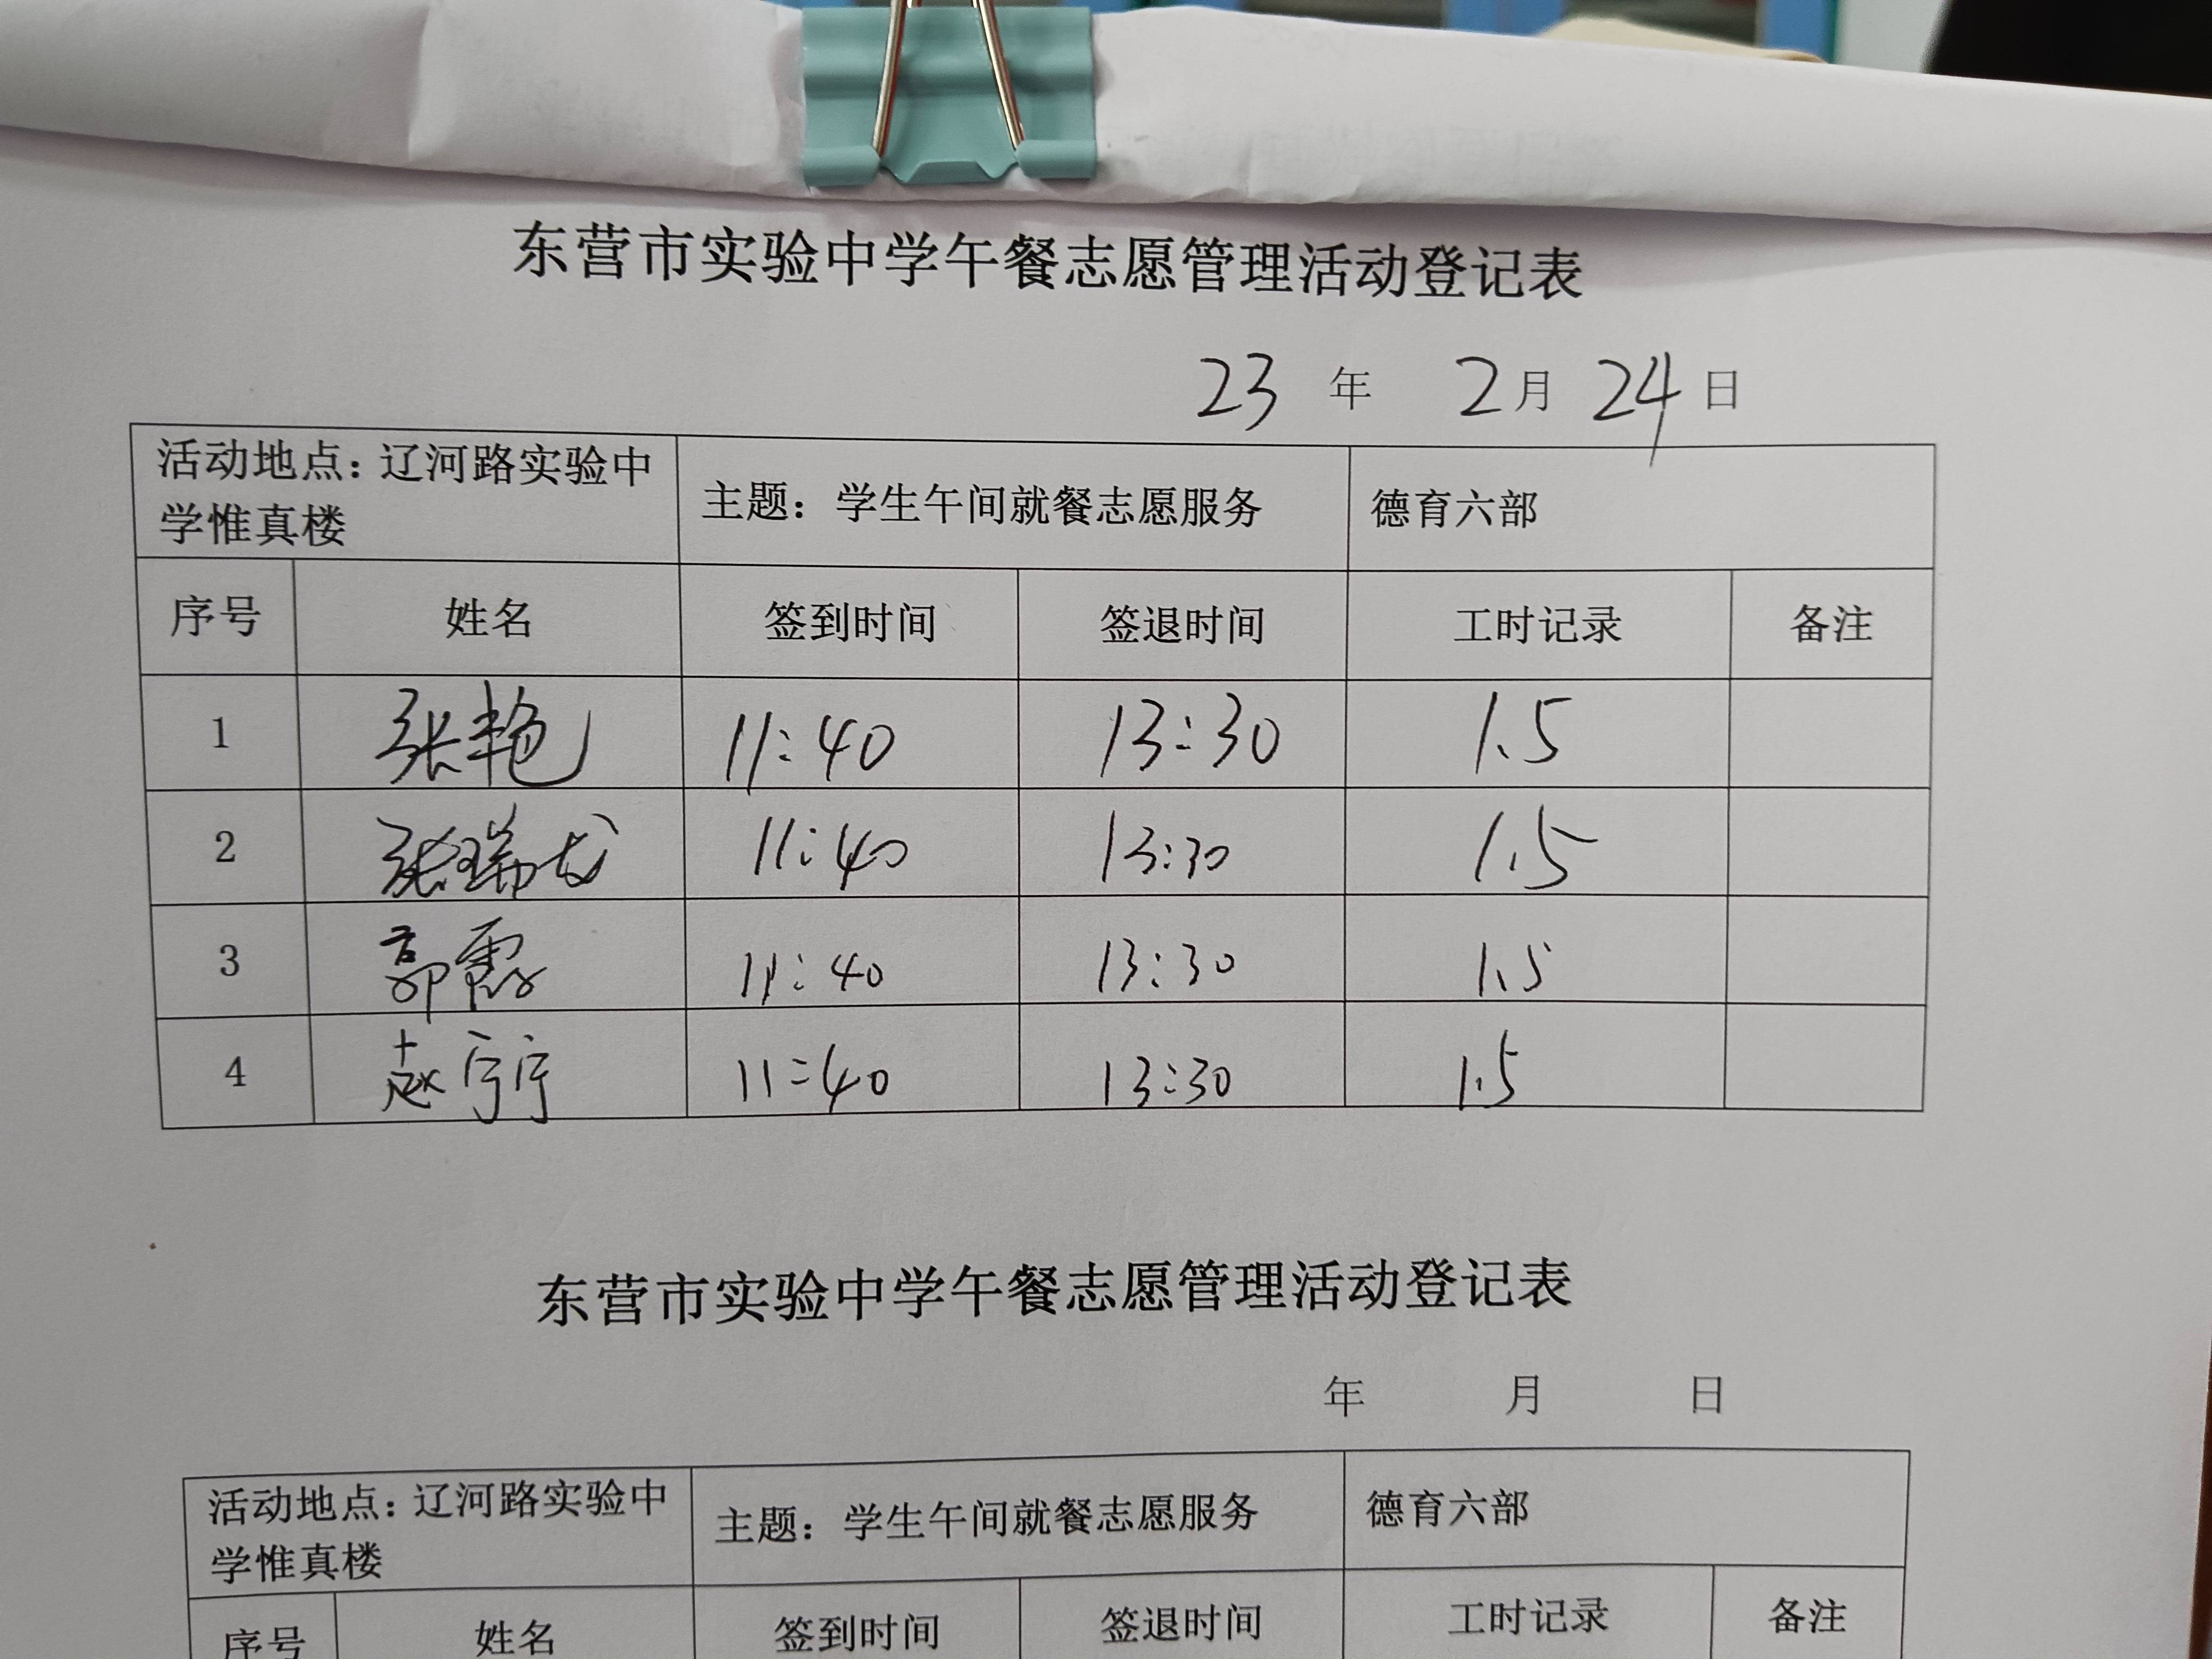 东营市实验中学午餐志愿管理活动登记表
23 年 2 月 24 日
活动地点：辽河路实验中
学惟真楼
主题：学生午间就餐志愿服务
德育六部
序号 姓名 签到时间 签退时间 工时记录 备注
1 张艳 11:40 13:30 1.5
2 张瑞龙 11:40 13:30 1.5
3 郭霞 11:40 13:30 1.5
4 赵宁宁 11:40 13:30 1.5
东营市实验中学午餐志愿管理活动登记表
年 月 日
活动地点：辽河路实验中
学惟真楼
主题：学生午间就餐志愿服务
德育六部
序号 姓名 签到时间 签退时间 工时记录 备注